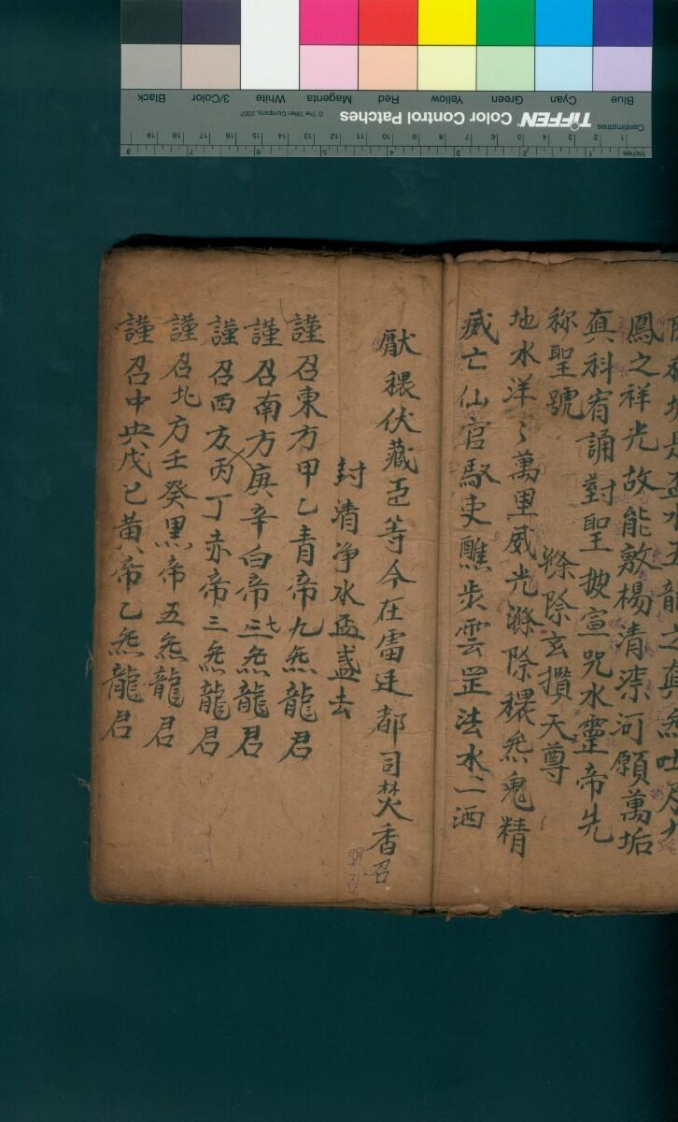 之真炁吐
鳳之祥光故能敷楊清㵂河願萬垢
真科宥誦對聖披宣咒水靈帝先
称聖號 滌除玄攬天尊
地水洋〻萬里威光滌除穢炁鬼精
滅亡仙官馭吏醮步雲罡法水一洒
厭穢伏藏臣等今在雷廷都司焚香召
封清净水盂盞去
謹召東方甲乙青帝九炁龍君
謹召南方庚辛白帝七炁龍君
謹召西方丙丁赤帝三炁龍君
謹召北方壬癸黑帝五炁龍君
謹召中央戊己黃帝乙炁龍君
Blue
Cyan
Green
Yellow
Red
Magenta
White
3/Color
Black
TIFFEN Color Control Patches
© The Tiffen Company, 2007
Centimetres
Inches